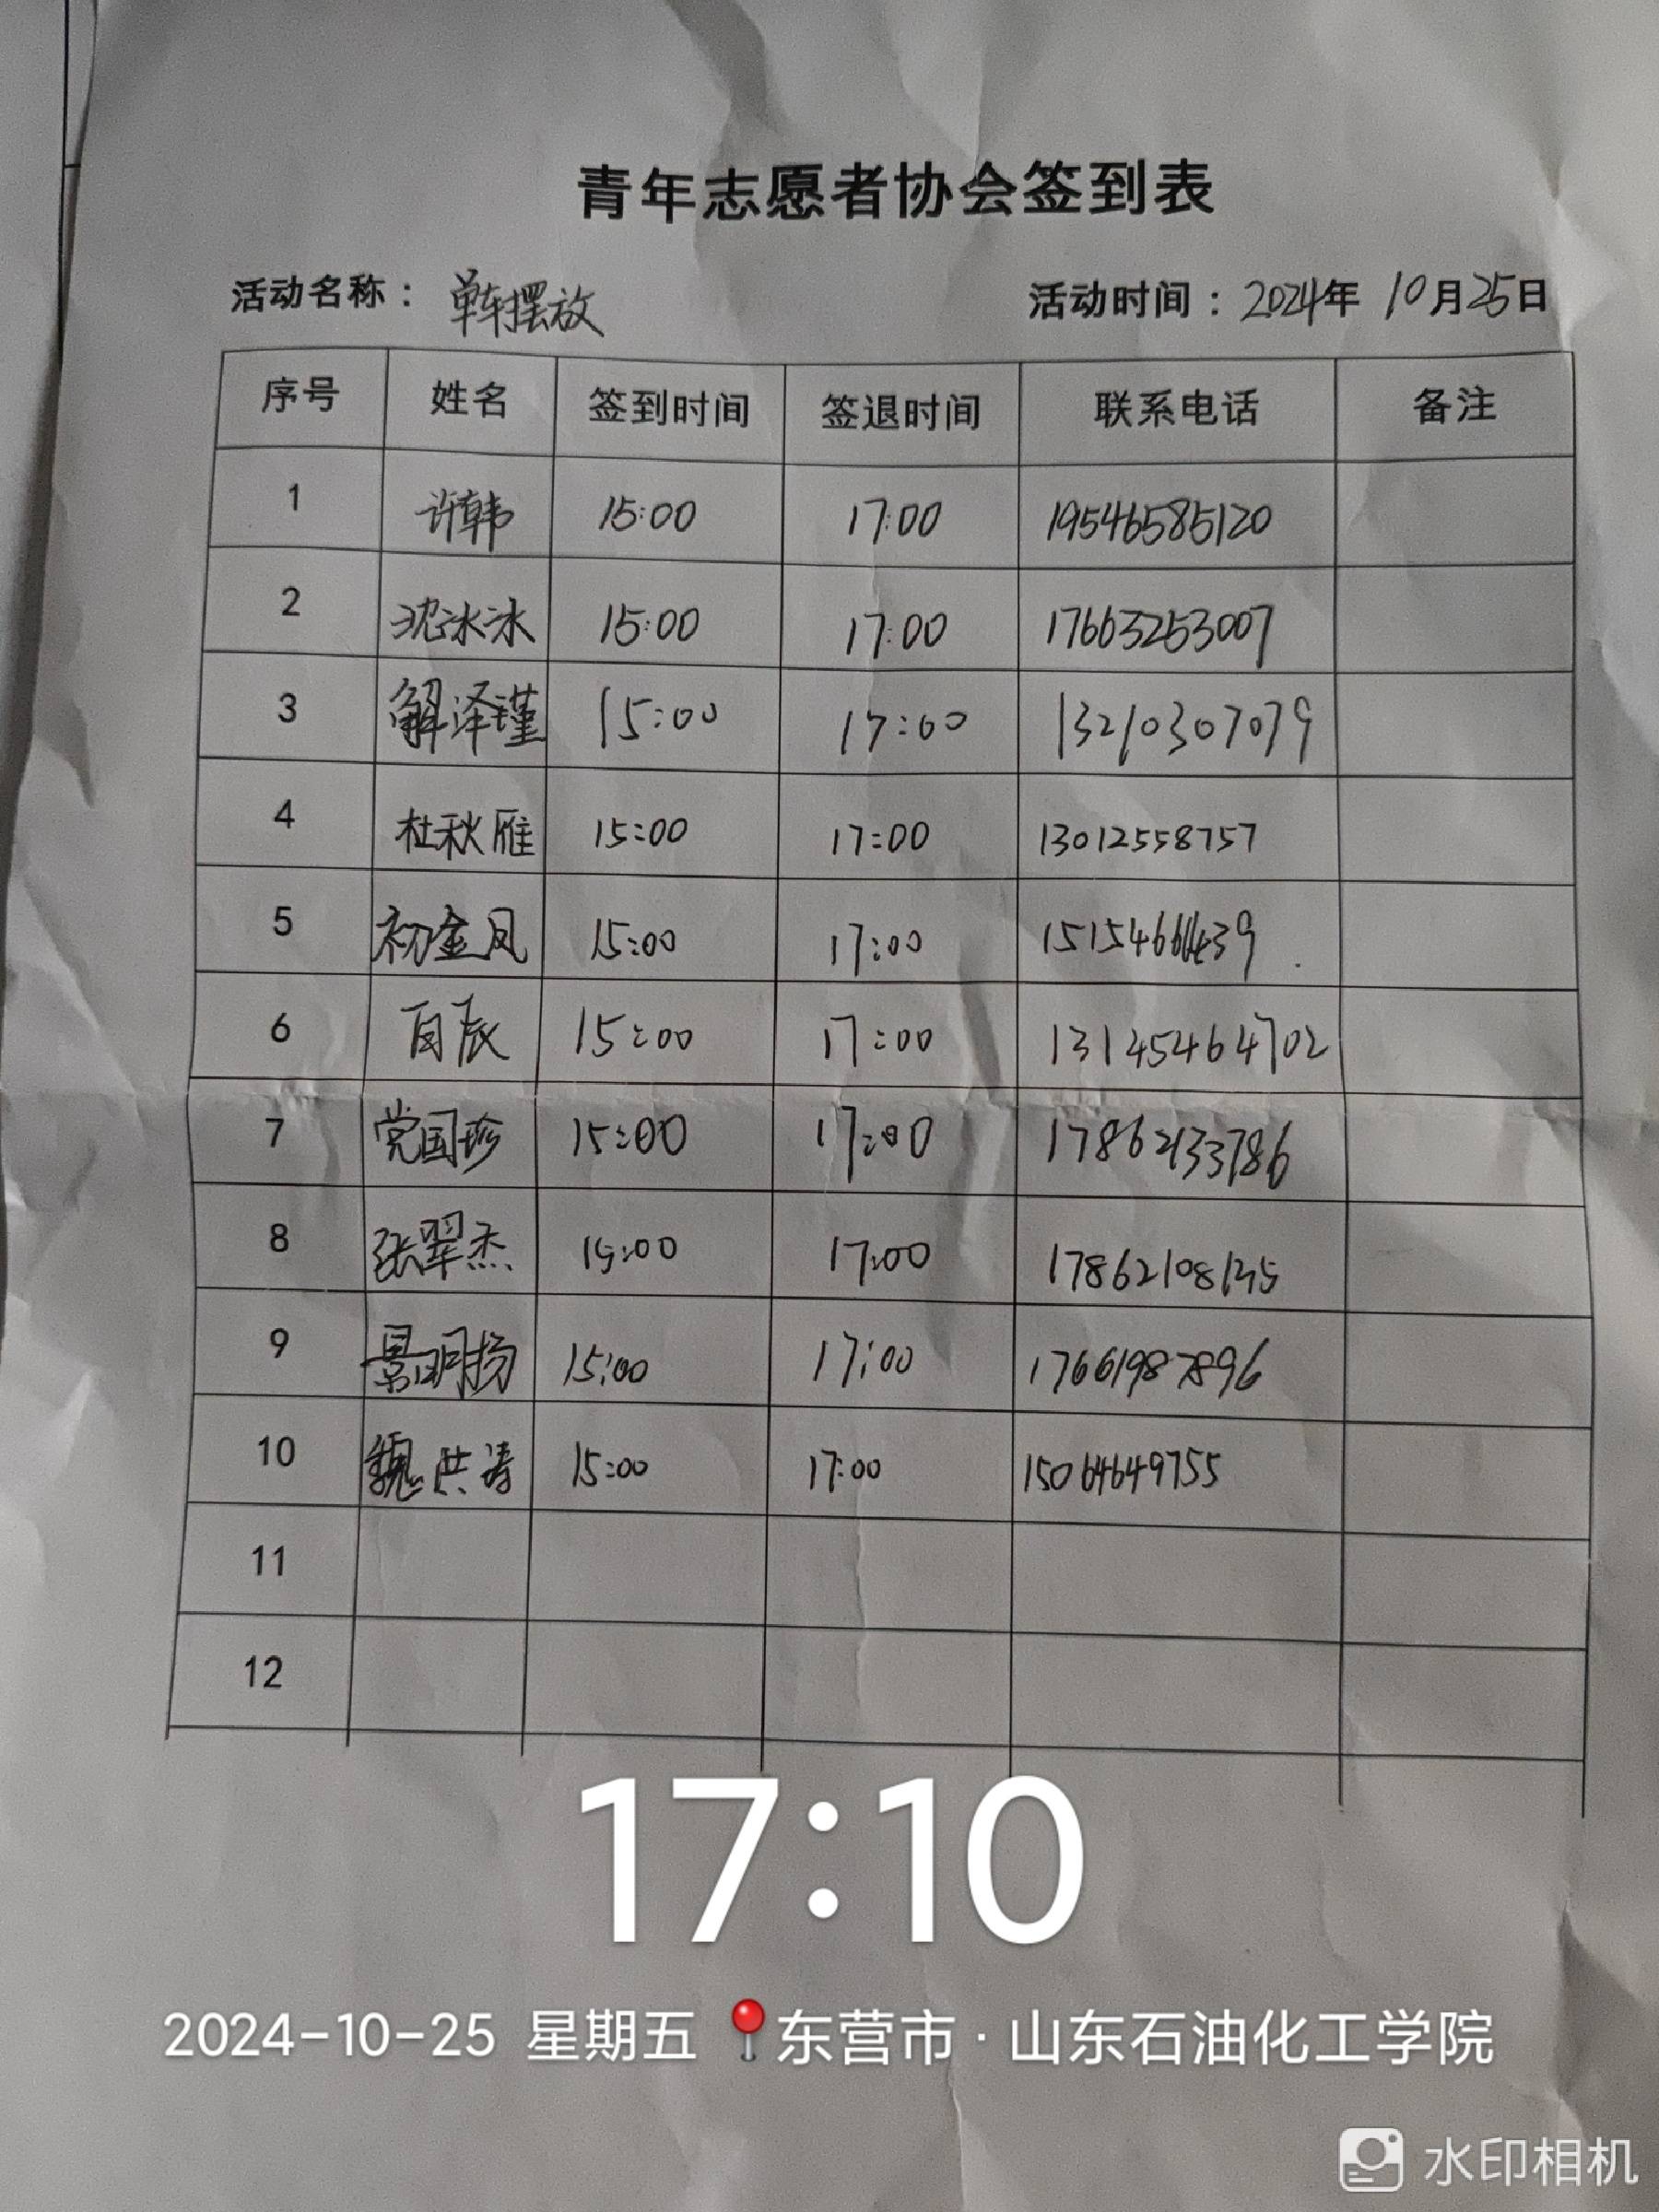 青年志愿者协会签到表
活动名称：单车摆放 活动时间：2024年 10月25日
序号 姓名 签到时间 签退时间 联系电话 备注
1 许韩 15:00 17:00 19546585120
2 沈冰冰 15:00 17:00 17663253007
3 解泽瑾 15:00 17:00 13210307079
4 杜秋雁 15:00 17:00 13012558757
5 初金凤 15:00 17:00
6 15:00 17:00 13145464702
7 党国珍 15:00 17:00 17862133786
8 张翠杰 15:00 17:00
9 景明扬 15:00 17:00 17661987896
10 魏洪涛 15:00 17:00 15064649755
11
12
17:10
2024-10-25 星期五 东营市·山东石油化工学院
水印相机